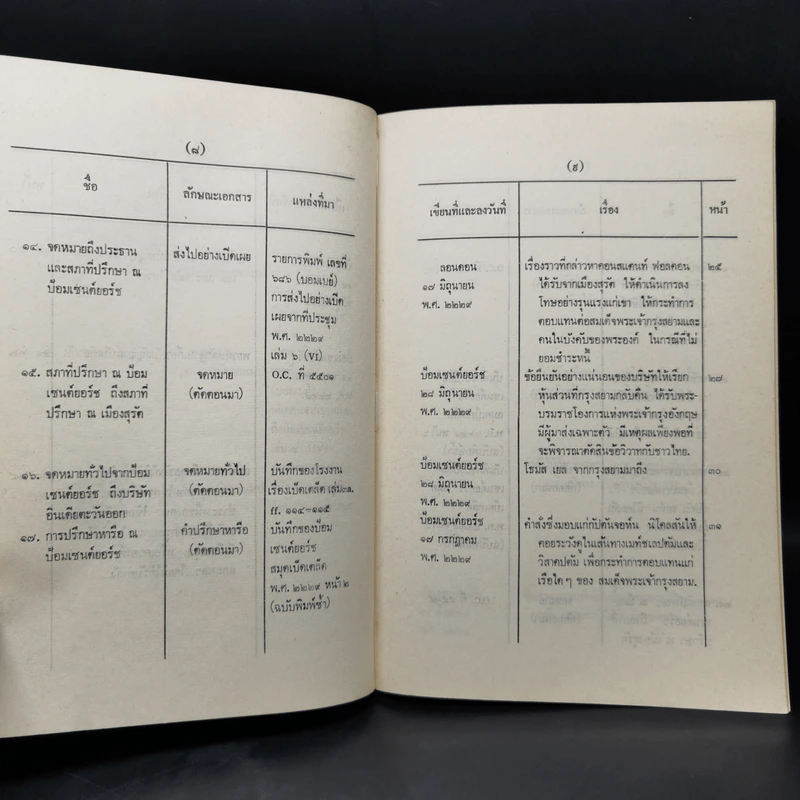 (๘)
ชื่อ
ลักษณะเอกสาร
แหล่งที่มา
๑๔. จดหมายถึงประธาน
และสภาที่ปรึกษา ณ
ป้อมเซนต์ยอร์ช
ส่งไปอย่างเปิดเผย
รายการพิมพ์ เลขที่
๖๘๖ (บอมเบย์)
การส่งไปอย่างเปิด
เผยจากที่ประชุม
พ.ศ. ๒๒๒๙
เล่ม ๖ (VI)
๑๕. สภาที่ปรึกษา ณ ป้อม
เซนต์ยอร์ช ถึงสภาที่
ปรึกษา ณ เมืองสุรัต
จดหมาย
(คัดตอนมา)
O.C. ที่ ๕๕๐๑
๑๖. จดหมายทั่วไปจากป้อม
เซนต์ยอร์ช ถึงบริษัท
อินเดียตะวันออก
จดหมายทั่วไป
(คัดตอนมา)
บันทึกของโรงงาน
เรื่องเบ็ดเตล็ด เล่ม
ff. ๑๑๔–๑๑๕
๑๗. การปรึกษาหารือ ณ
ป้อมเซนต์ยอร์ช
คำปรึกษาหารือ
(คัดตอนมา)
บันทึกของป้อม
เซนต์ยอร์ช
สมุดเบ็ดเตล็ด
พ.ศ. ๒๒๒๙ หน้า ๒
(ฉบับพิมพ์ช้ำ)
(๙)
เขียนที่และลงวันที่
เรื่อง
หน้า
ลอนดอน
๑๗ มิถุนายน
พ.ศ. ๒๒๒๙
เรื่องราวที่กล่าวหาคอนสแตนท์ ฟอลคอน
ได้รับจากเมืองสุรัต ให้ดำเนินการลง
โทษอย่างรุนแรงแก่เขา ให้กระทำการ
ตอบแทนต่อสมเด็จพระเจ้ากรุงสยามและ
คนในบังคับของพระองค์ ในกรณีที่ไม่
ยอมชำระหนี้
๒๕
ป้อมเซนต์ยอร์ช
๒๘ มิถุนายน
พ.ศ. ๒๒๒๙
ข้อยืนยันอย่างแน่นอนของบริษัทให้เรียก
หุ้นส่วนที่กรุงสยามกลับคืน ได้รับพระ-
บรมราชโองการแห่งพระเจ้ากรุงอังกฤษ
มีผู้มาส่งเฉพาะตัว มีเหตุผลเพียงพอที่
จะพิจารณาตัดสินข้อวิวาทกับชาวไทย.
๒๗
ป้อมเซนต์ยอร์ช
๒๘ มิถุนายน
พ.ศ. ๒๒๒๙
โธมัส เยล จากกรุงสยามมาถึง
๓๐
ป้อมเซนต์ยอร์ช
๑๗ กรกฎาคม
พ.ศ. ๒๒๒๙
คำสั่งซึ่งมอบแก่กัปตันจอห์น นิโคลสันให้
คอยระวังดูในเส้นทางเมทช์เลปตัมและ
วิสาคปตัม เพื่อกระทำการตอบแทนแก่
เรือใดๆ ของ สมเด็จพระเจ้ากรุงสยาม.
๓๑